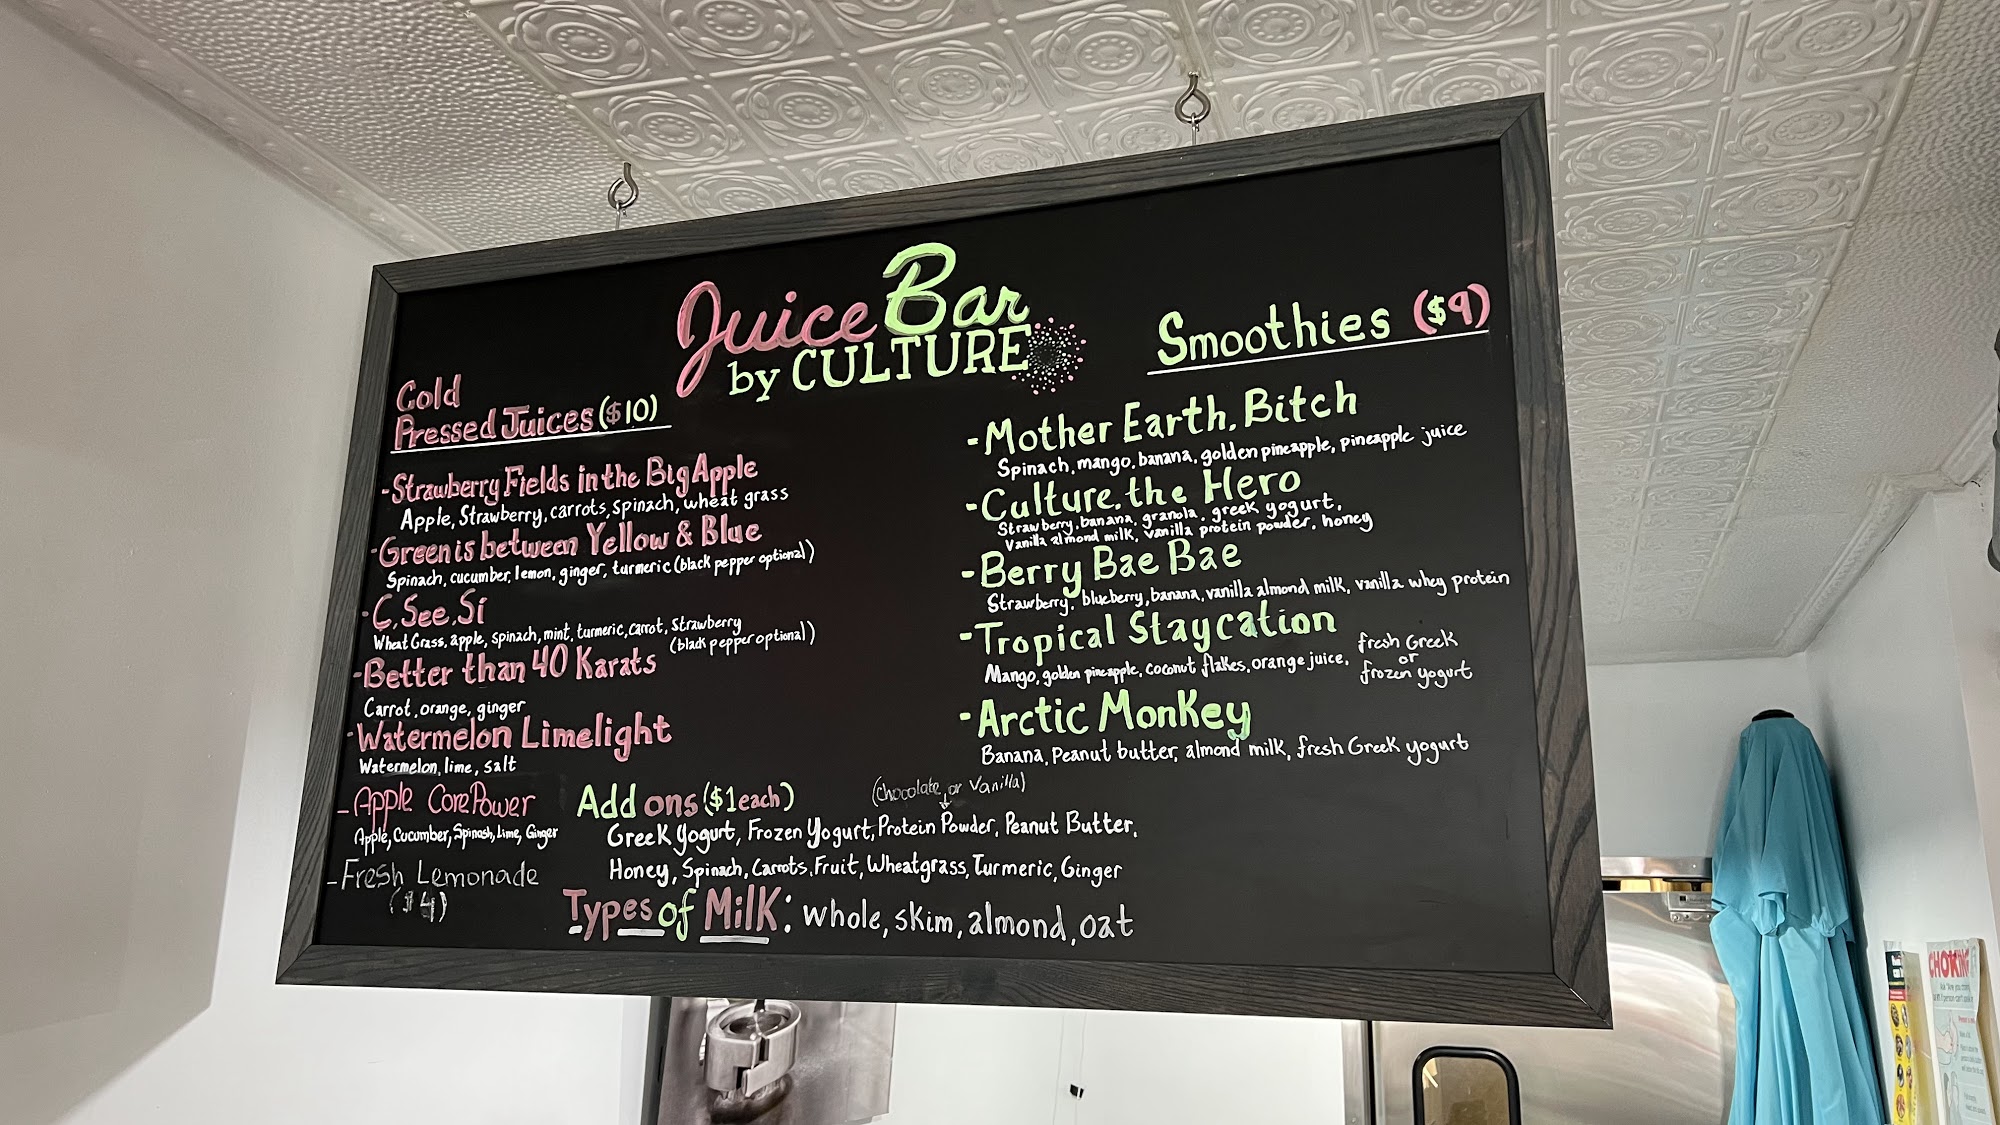 Juice Bar
by CULTURE
Cold
Pressed Juices ($10)
-Strawberry Fields in the Big Apple
Apple, Strawberry, carrots, spinach, wheat grass
-Green is between Yellow & Blue
Spinach, cucumber, lemon, ginger, turmeric (black pepper optional)
-C, See, Sí
Wheat Grass, apple, spinach, mint, turmeric, carrot, Strawberry
(black pepper optional)
-Better than 40 Karats
Carrot, orange, ginger
-Watermelon Limelight
Watermelon, lime, salt
-Apple Core Power
Apple, Cucumber, Spinash, Lime, Ginger
-Fresh Lemonade
($4)
Smoothies ($9)
-Mother Earth, Bitch
Spinach, mango, banana, golden pineapple, pineapple juice
-Culture, the Hero
Strawberry, banana, granola, greek yogurt,
Vanilla almond milk, vanilla protein powder, honey
-Berry Bae Bae
Strawberry, blueberry, banana, vanilla almond milk, vanilla whey protein
-Tropical Staycation
Mango, golden pineapple, coconut flakes, orange juice, fresh Greek
or
frozen yogurt
-Arctic Monkey
Banana, Peanut butter, almond milk, fresh Greek yogurt
Add ons ($1 each)
(chocolate or Vanilla)
Greek Yogurt, Frozen Yogurt, Protein Powder, Peanut Butter,
Honey, Spinach, Carrots, Fruit, Wheatgrass, Turmeric, Ginger
Types of Milk: whole, skim, almond, oat
CHOKING